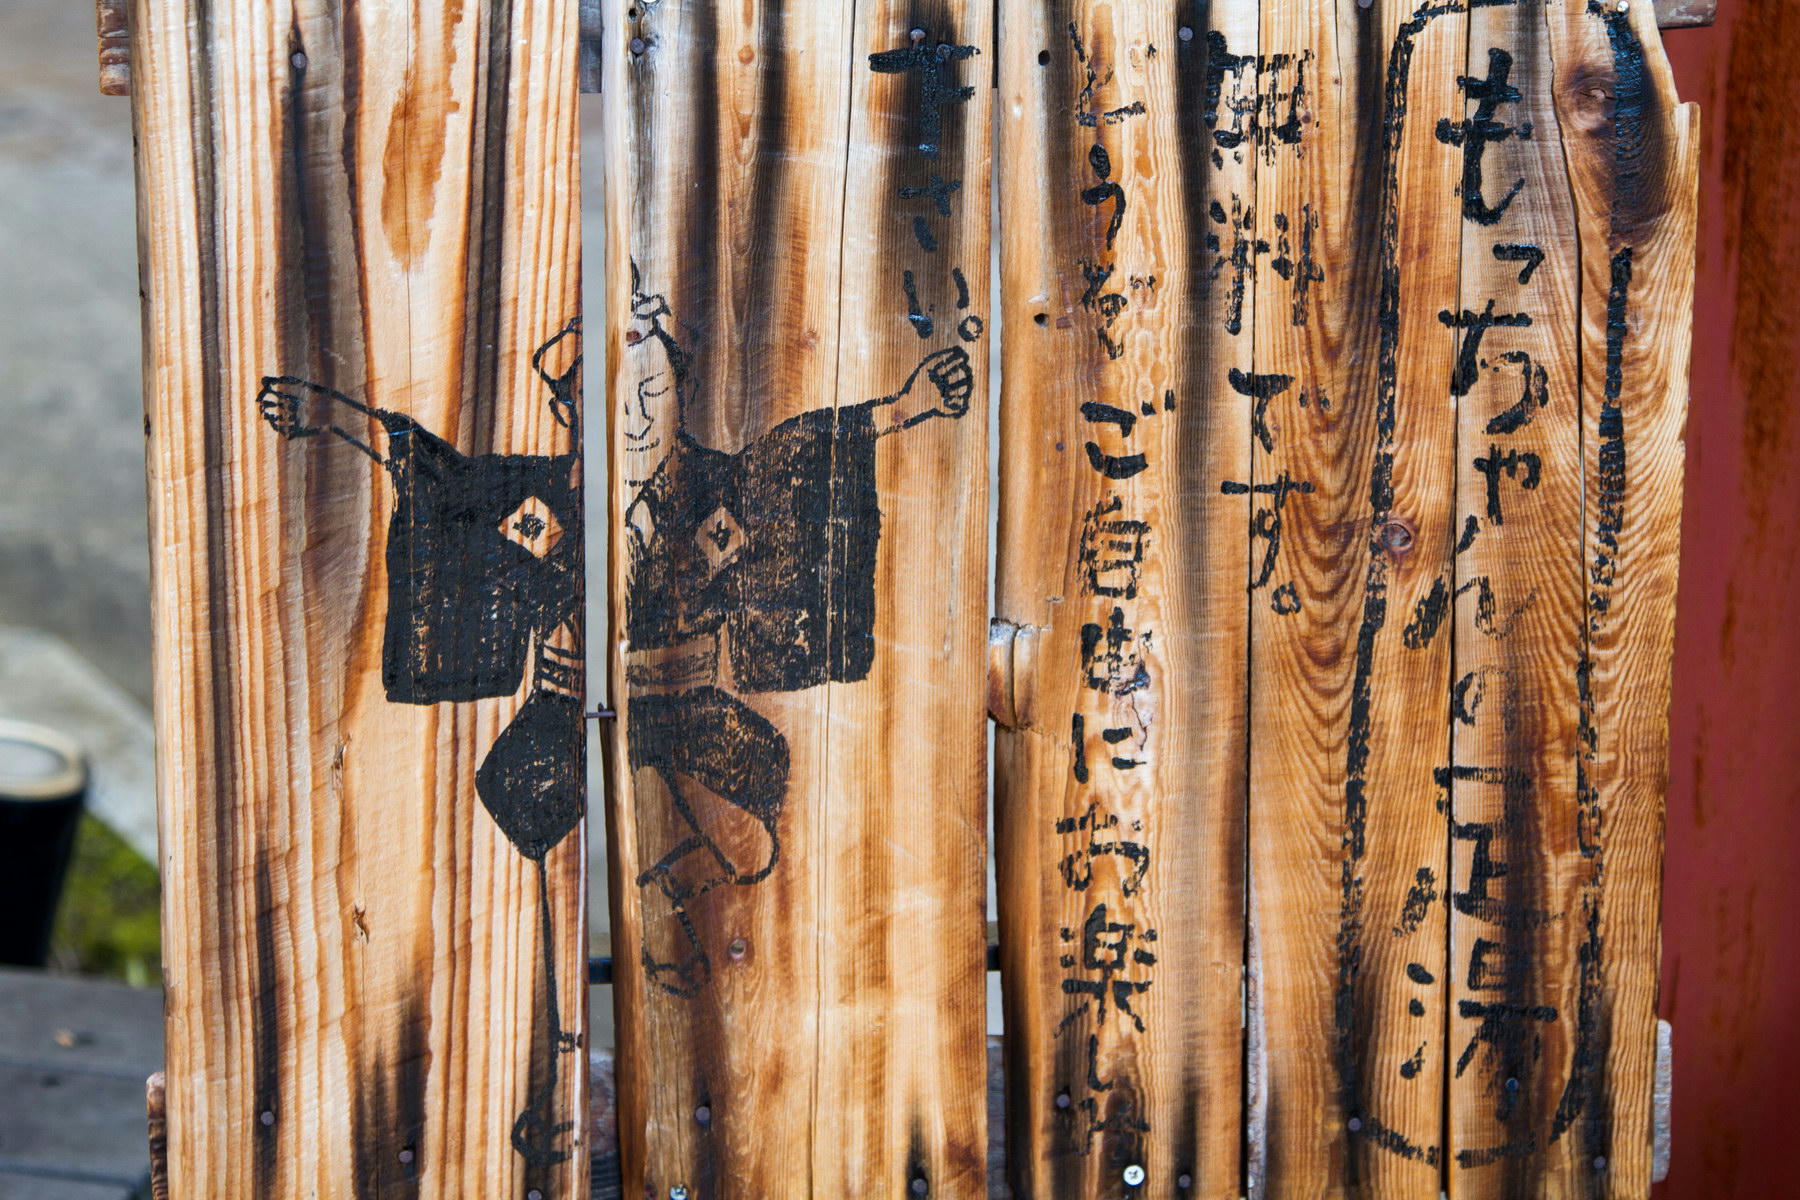 もっちゃんの足湯
無料です。
どうぞご自由にお楽しみ
下さい。